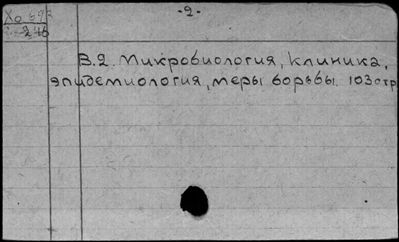 -2-
Хо 692
2-246
В.2. Микробиология, клиника,
эпидемиология, меры борьбы. 103стр